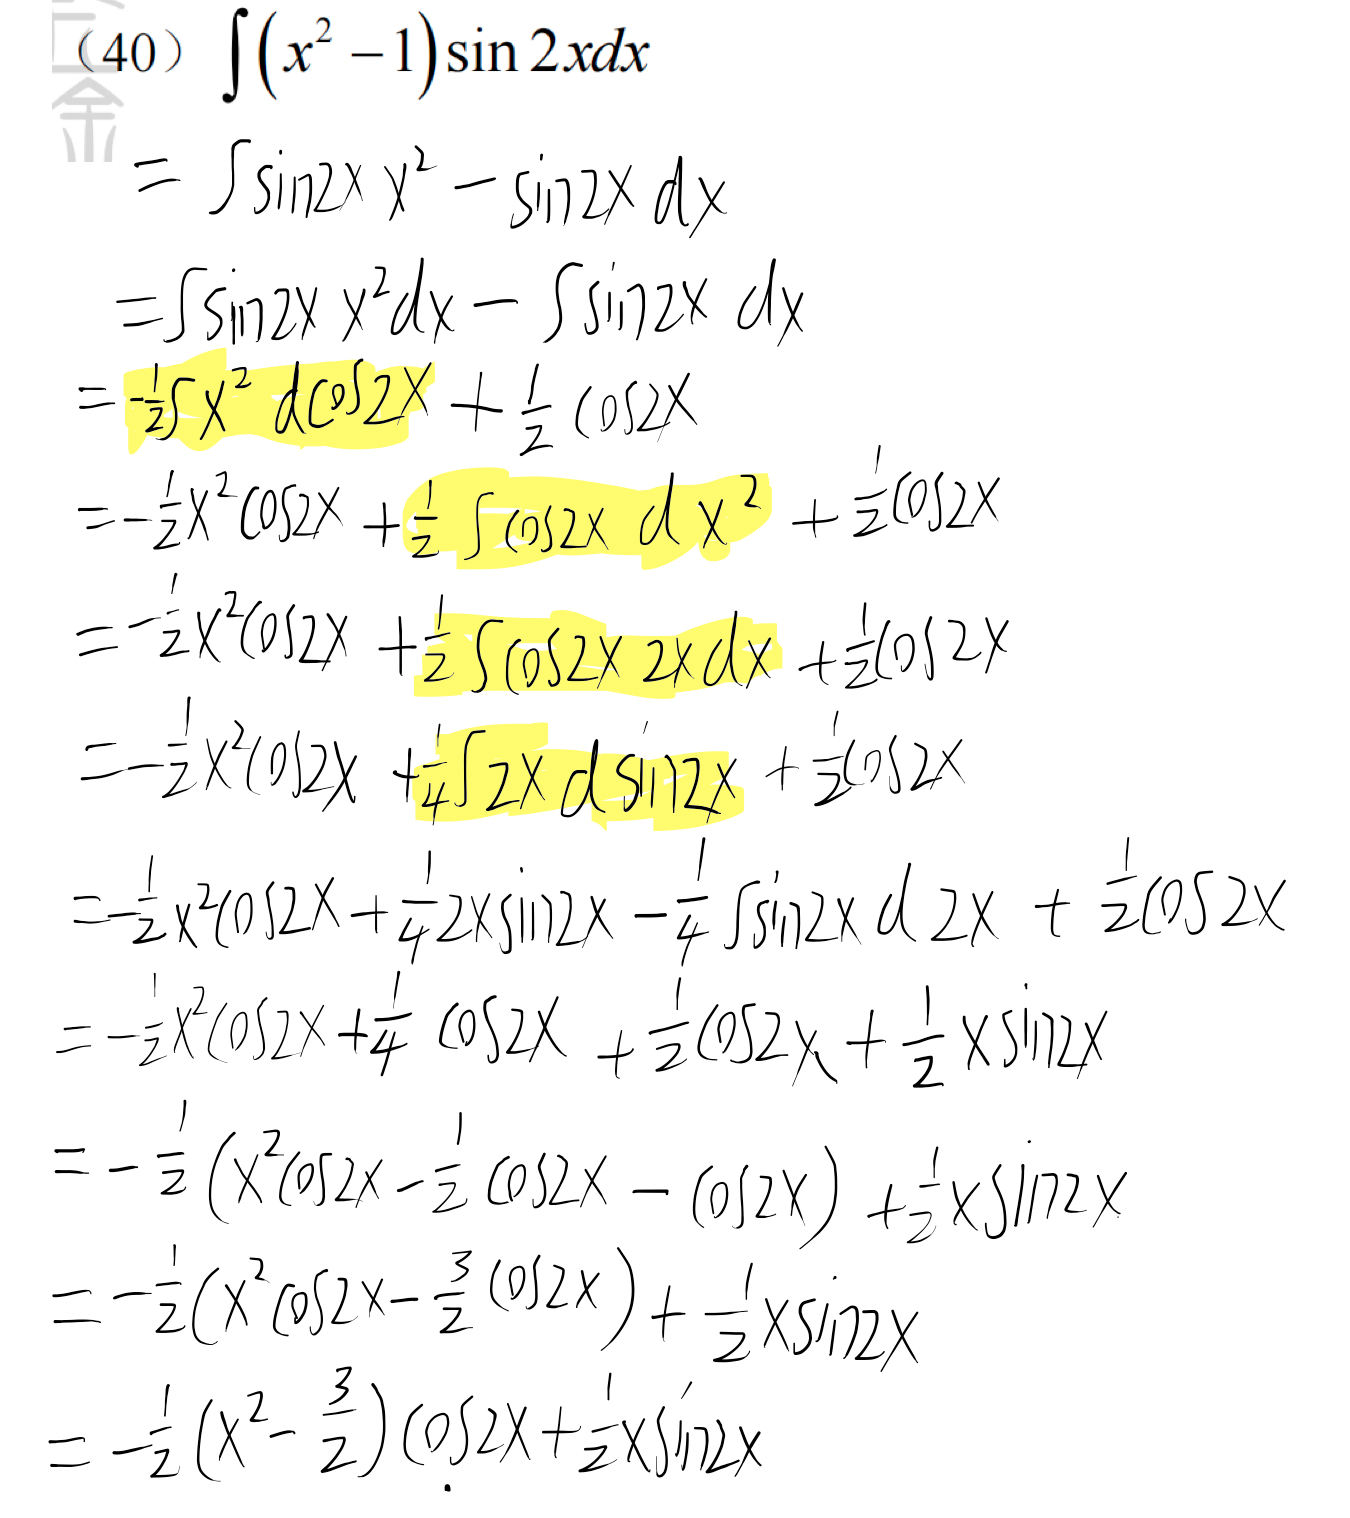 (40) ∫(x² −1)sin 2xdx
= ∫sin2x x² − sin2x dx
= ∫sin2x x²dx − ∫sin2x dx
= -½∫x² dcos2x + ½ cos2x
= -½x²cos2x + ½ ∫cos2x dx² + ½cos2x
= -½x²cos2x + ½ ∫cos2x 2xdx + ½cos2x
= -½x²cos2x + ¼∫2x dsin2x + ½cos2x
= -½x²cos2x + ¼2xsin2x − ¼ ∫sin2x d2x + ½cos2x
= -½x²cos2x + ¼ cos2x + ½cos2x + ½ xsin2x
= -½(x²cos2x − ½ cos2x − cos2x) + ½xsin2x
= -½(x²cos2x − 3/2 cos2x) + ½xsin2x
= -½(x² − 3/2)cos2x + ½xsin2x